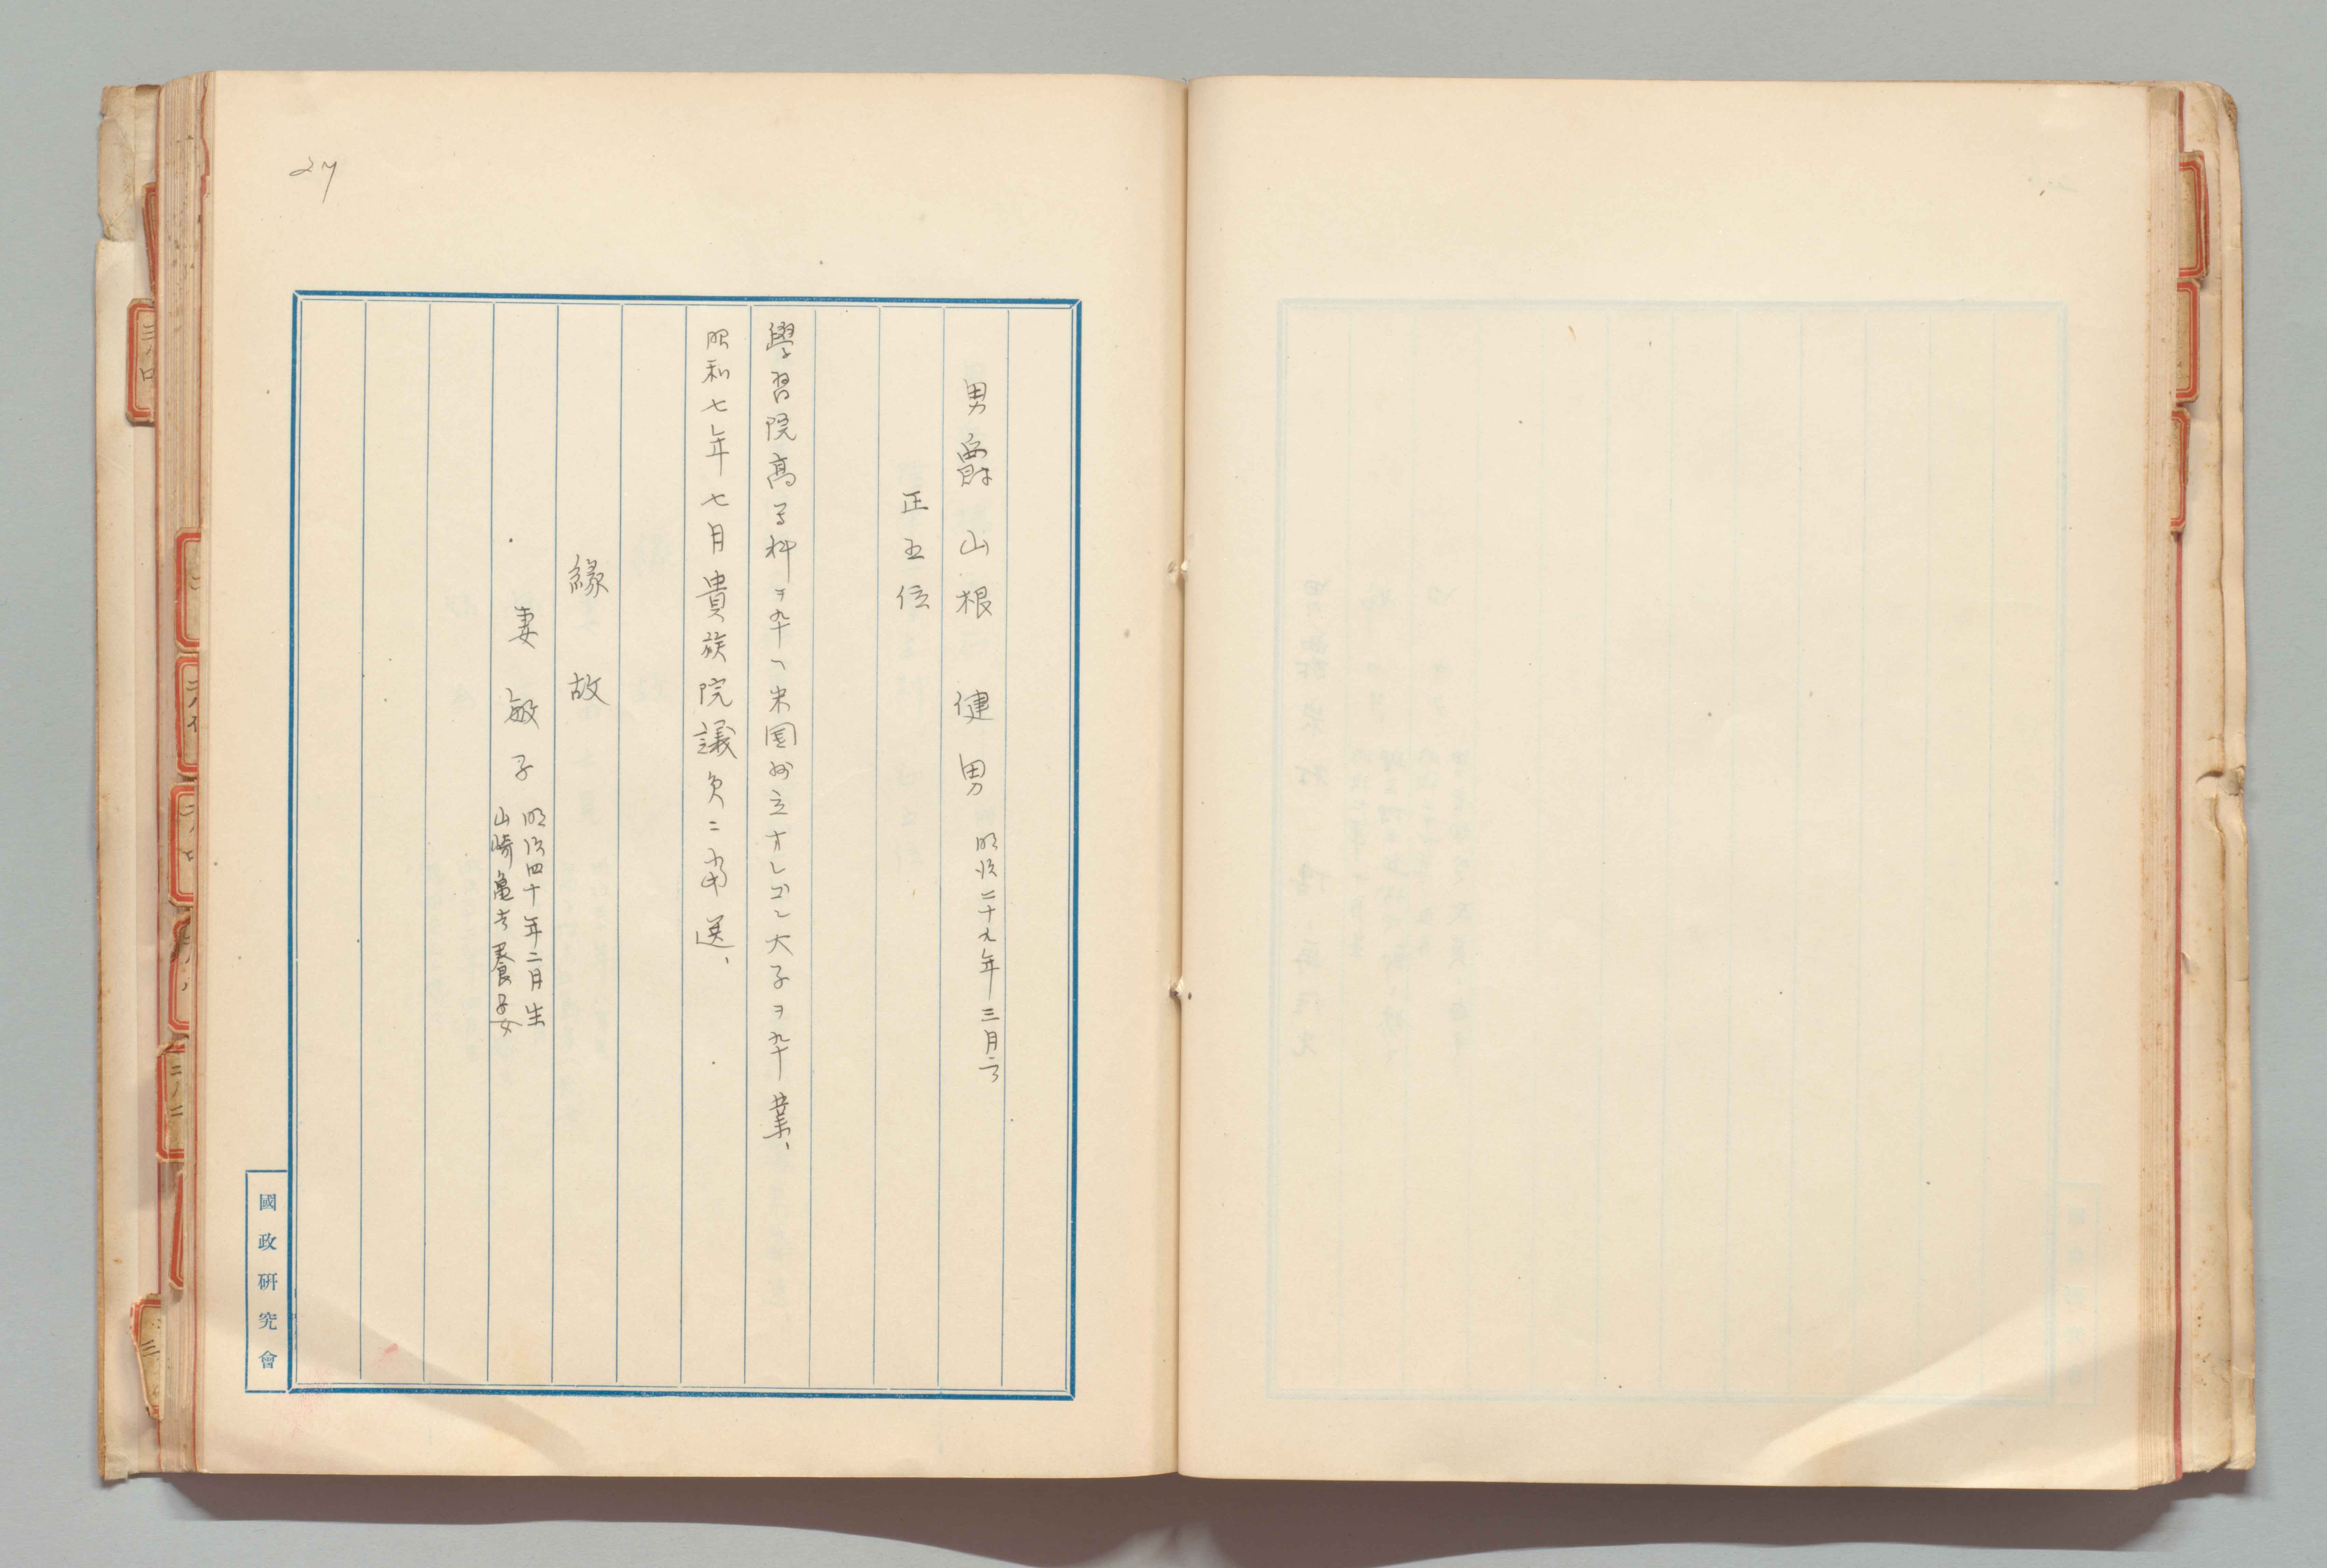 27
男爵 山根 健男 明治二十九年三月
正五位
學習院高等科ヲ卆ヘ米国州立オレゴン大学ヲ卆業、
昭和七年七月貴族院議員ニ當選、
緣故
妻 敏子 明治四十年二月生
山崎亀吉養子女
國政研究會